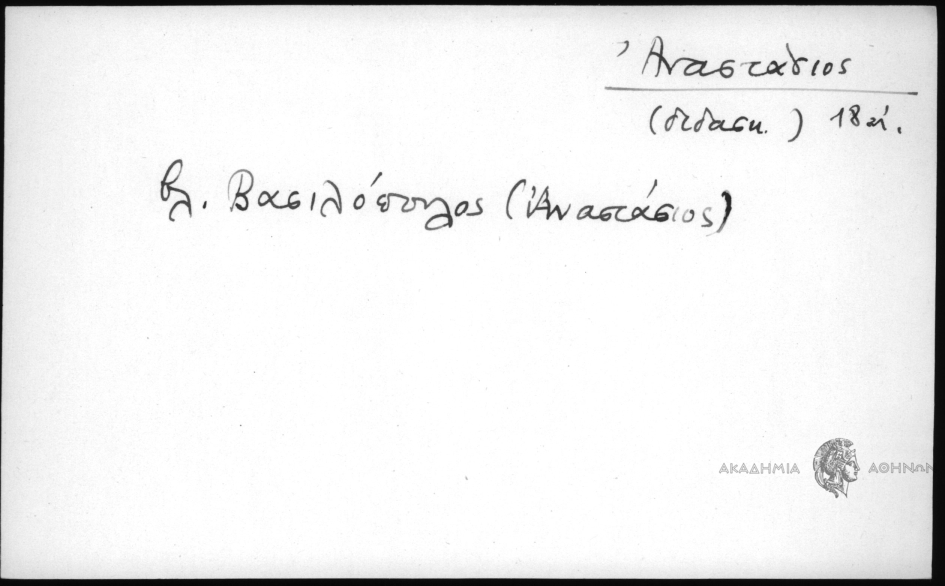 Ἀναστάσιος
(διδασκ.) 18 αἰ.
βλ. Βασιλόπουλος (Ἀναστάσιος)
ΑΚΑΔΗΜΙΑ ΑΘΗΝΩΝ